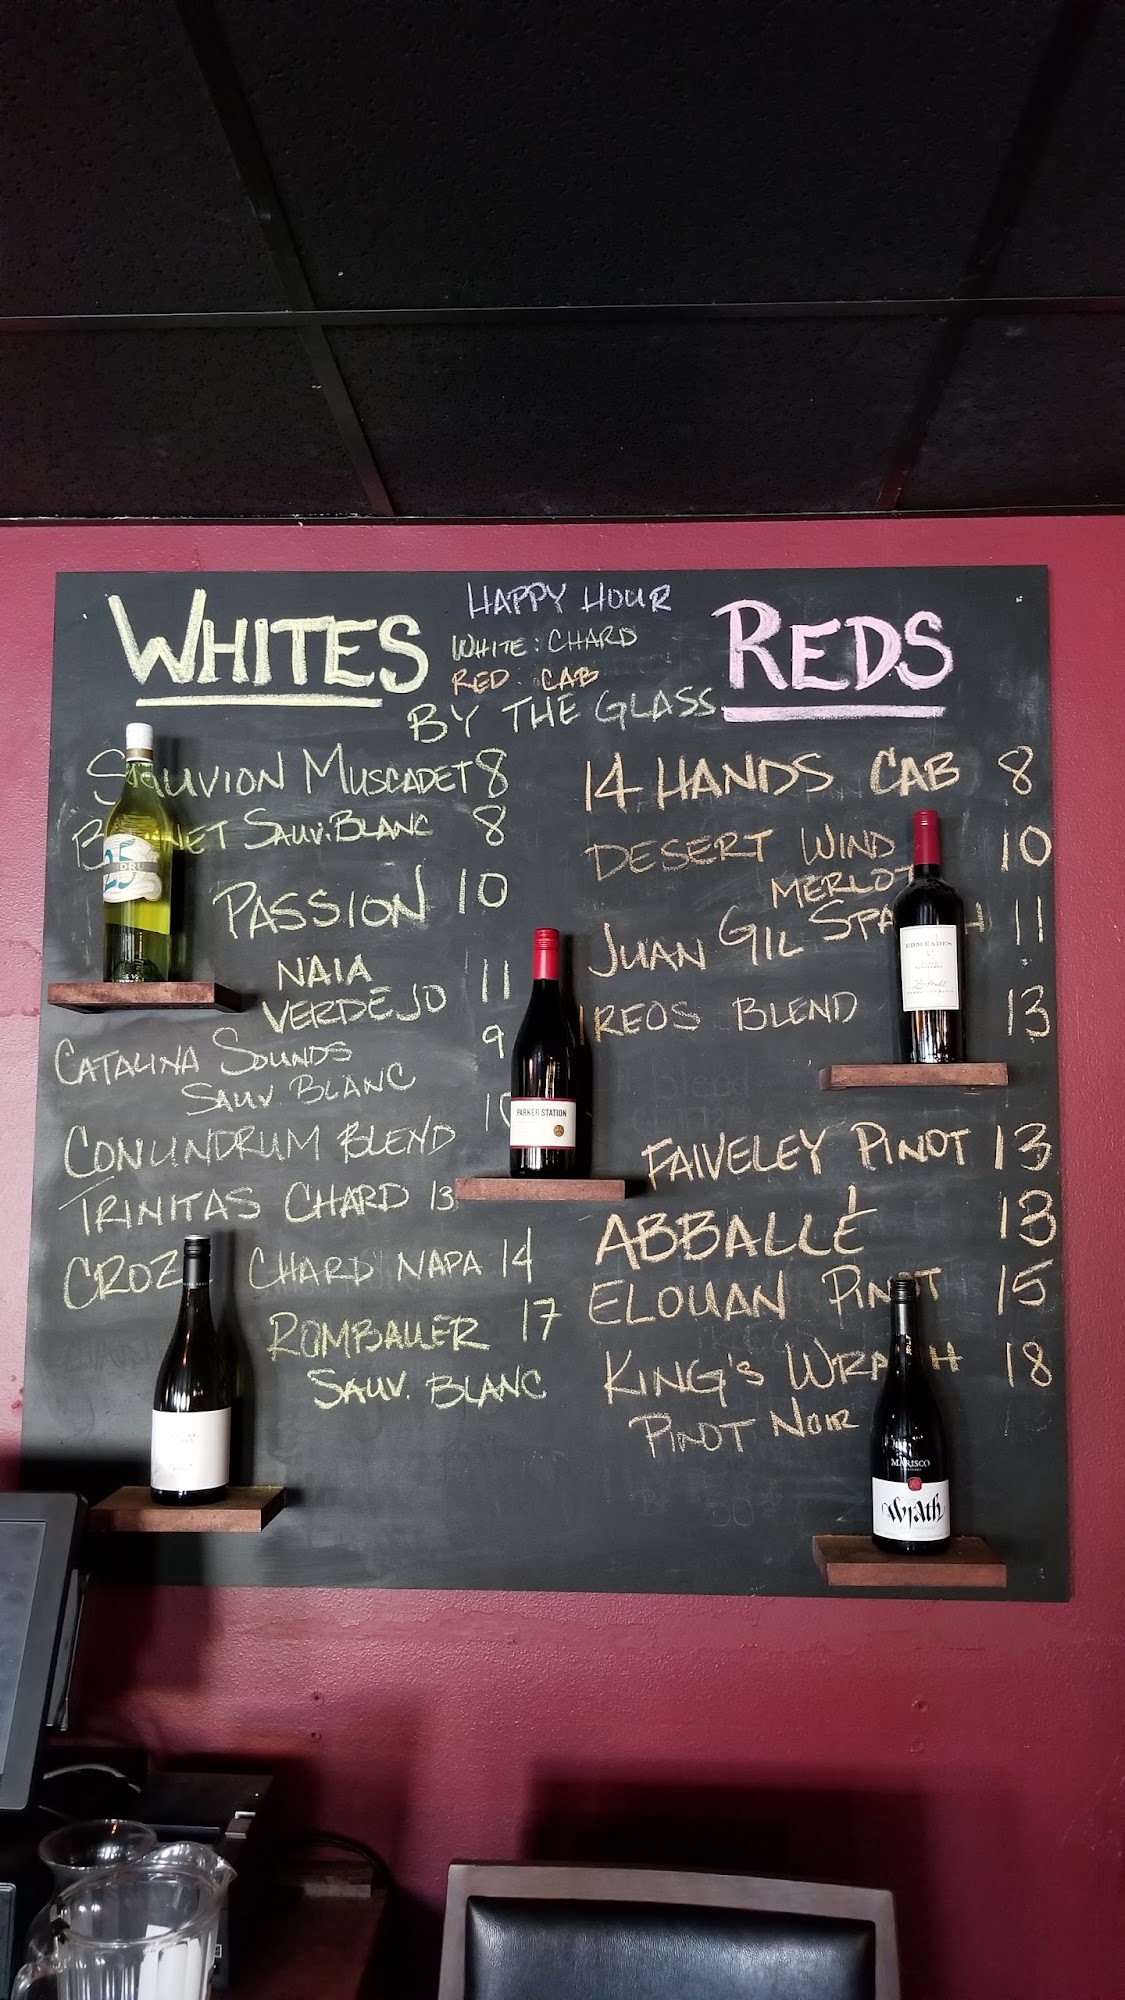 WHITES
HAPPY HOUR
WHITE: CHARD
RED: CAB
BY THE GLASS
REDS
SAUVION MUSCADET 8
SAUV. BLANC 8
PASSION 10
NAIA 11
VERDEJO
CATALINA SOUNDS 9
SAUV. BLANC
CONUNDRUM BLEND
TRINITAS CHARD 13
CHARD NAPA 14
ROMBAUER 17
SAUV. BLANC
14 HANDS CAB 8
DESERT WIND 10
MERLOT
JUAN GIL SPANISH 11
BLEND 13
FAIVELEY PINOT 13
ABBALLÉ 13
ELOUAN PINOT 15
KING'S WRATH 18
PINOT NOIR
25
PARKER STATION
EDMEADES
MARISCO
Wrath